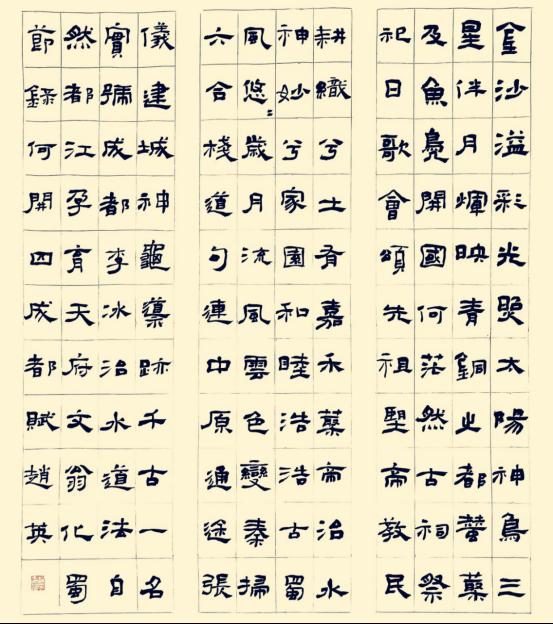 金沙溢彩光照太陽神鳥三
星伴月煇映青銅之都蠶叢
及魚鳧開國何茫然古祠祭
祀日歌會頌先祖望帝教民
耕織兮土有嘉禾叢帝治水
神妙兮家園和睦浩浩古蜀
風悠〻歲月流風雲色變秦掃
六合棧道句連中原通途張
儀建城神龜跡千古一名
實號成都李冰治水道法自
然都江孕育天府文翁化蜀
節錄何開四成都賦趙英